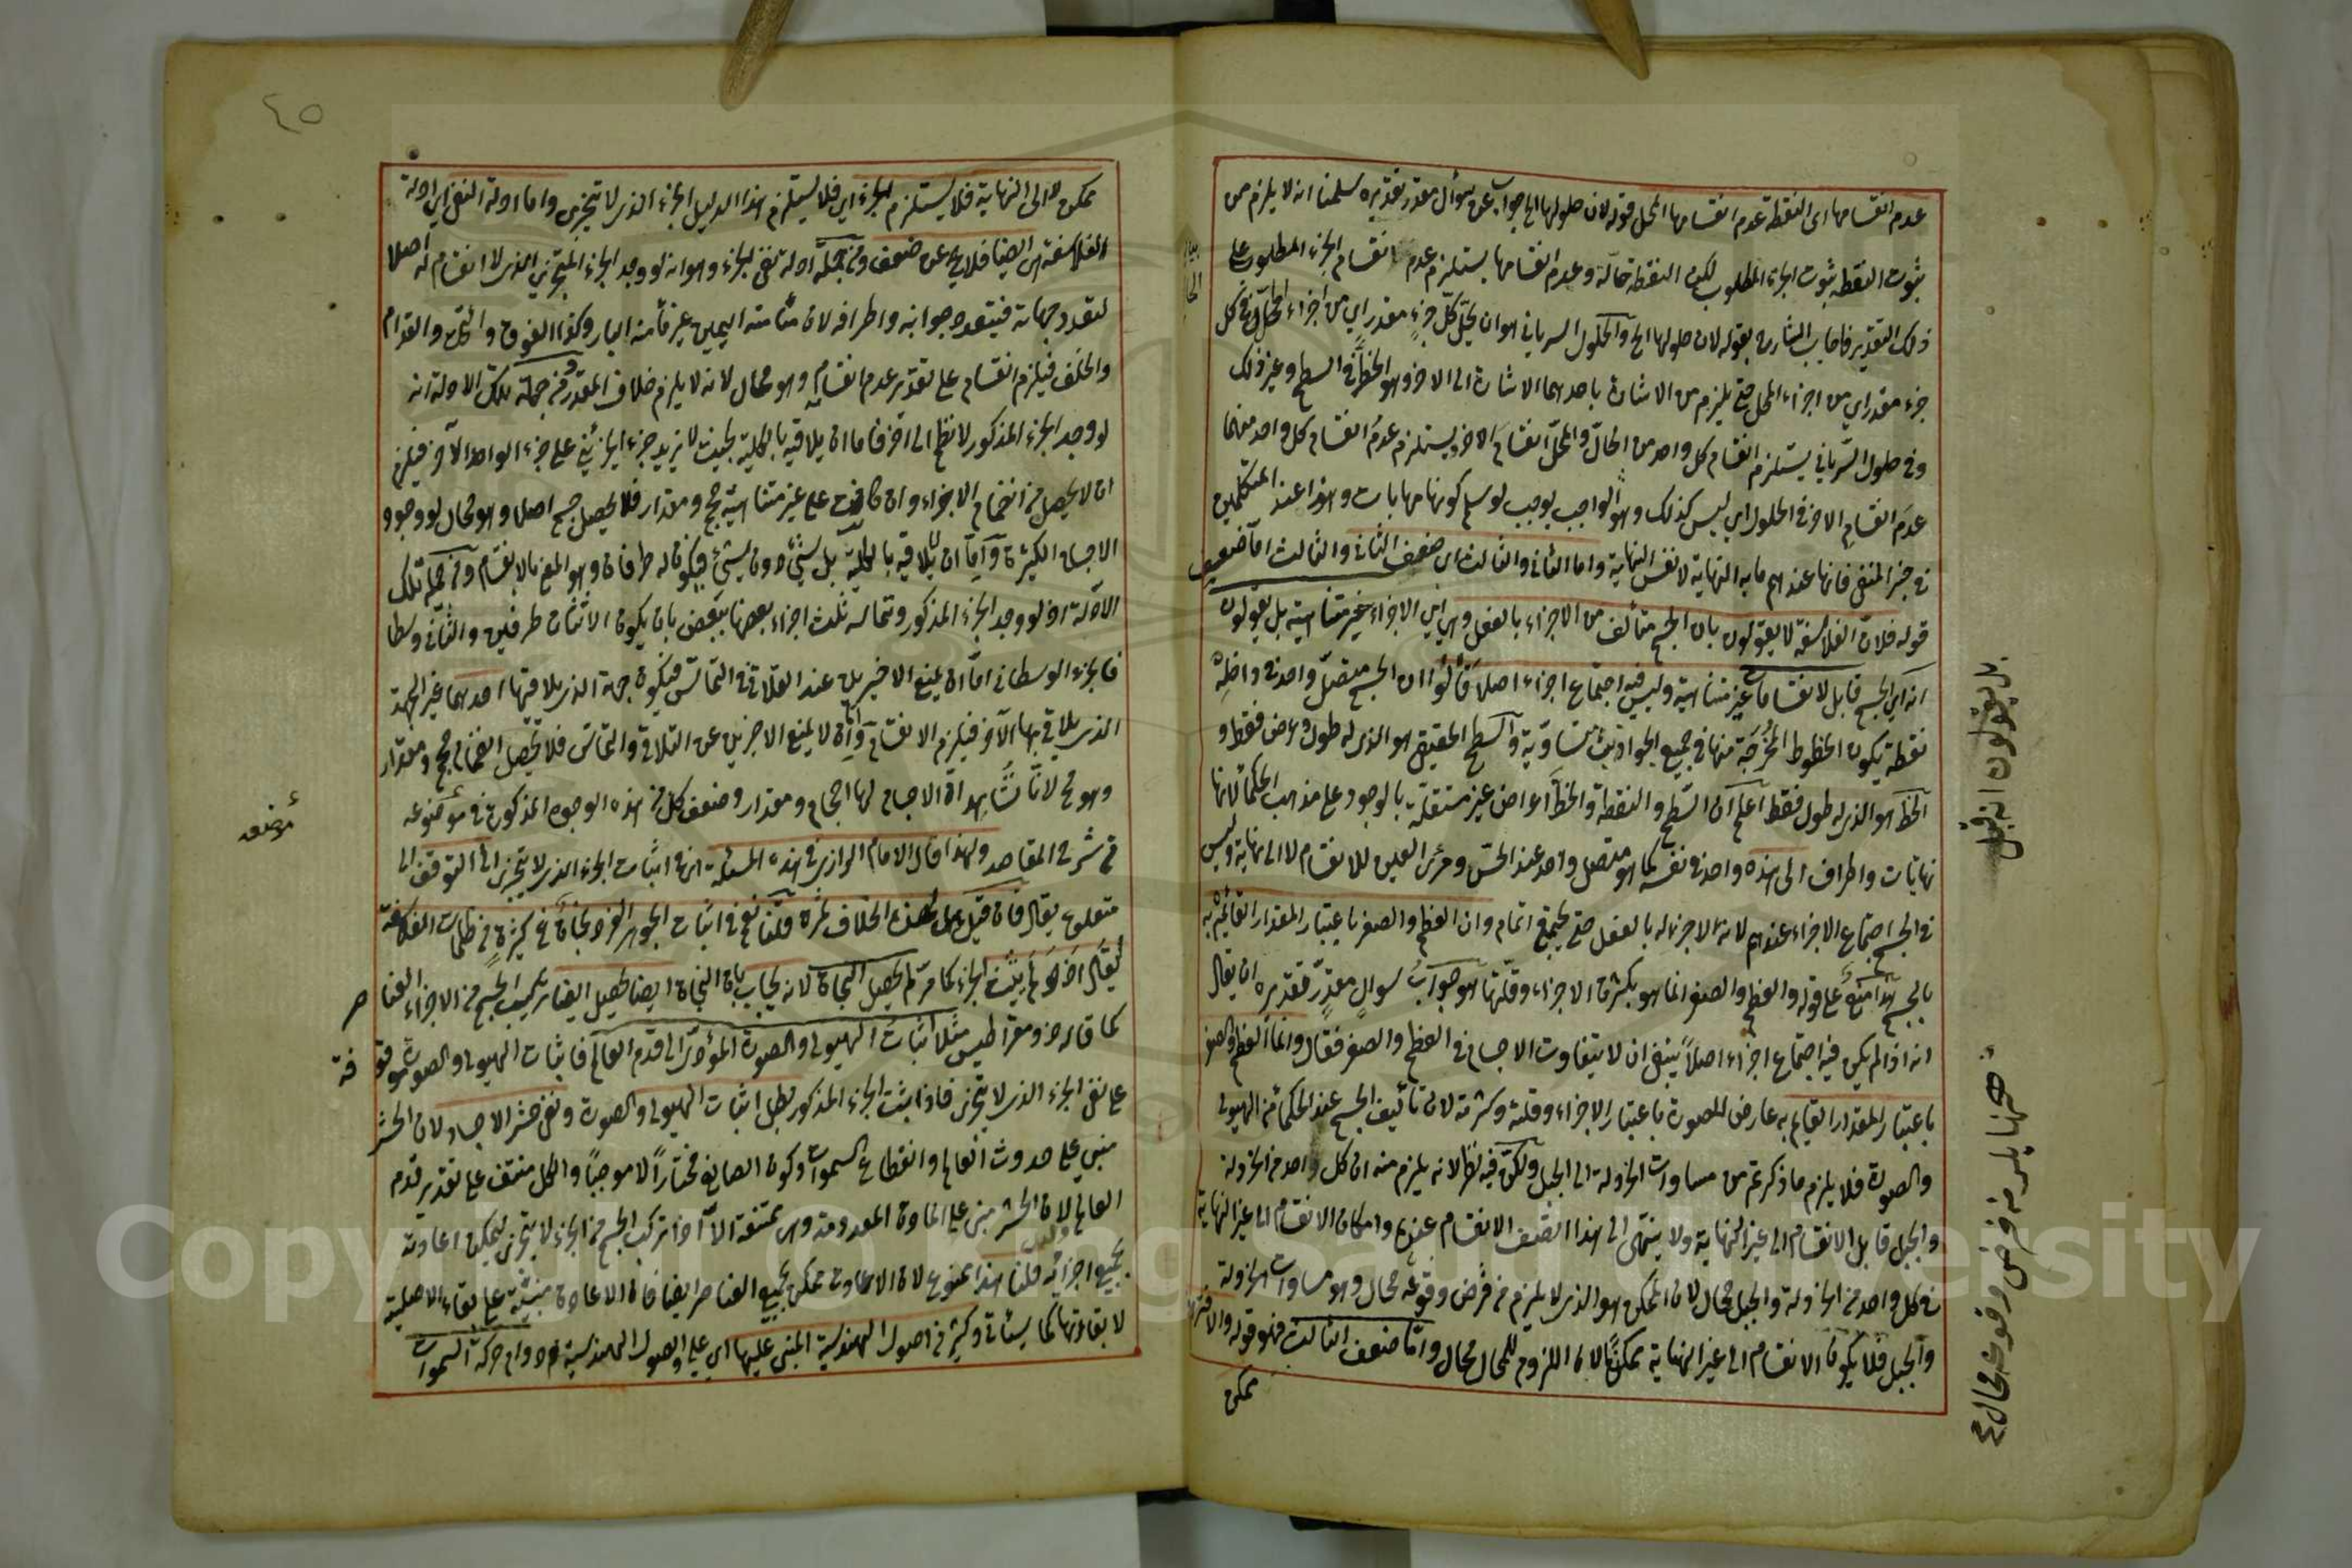 عدم انقسامها اى النقطة عدم انقسامها المحل قوله لان حلولها الخ جواب عن سؤال مقدر تقديره سلمنا انه لا يلزم من
ثبوت النقطة ثبوت الجزء المطلوب لكن النقطة حالّة وعدم انقسامها يستلزم عدم انقسام الجزء المطلوب على
ذلك التقدير فاجاب الشارح بقوله لان حلولها الخ والحلول السرياني هو ان يحلّ كلّ جزء مقدر اي من اجزاء الحالّ في كل
جزء مقدر اي من اجزاء المحل حتى يلزم من الاشارة باحدهما الاشارة الى الاخر وهو الخط في السطح وغير ذلك
وفى حلول السّرياني يستلزم انقسام كل واحد من الحالّ والمحلّ انقسام الاخر ويستلزم عدم انقسام كل واحد منهما
عدم انقسام الاخر في الحلول اي ليس كذلك وهو الواجب بوجيب لو سلم كونها مهابات وهذا عند المتكلمين
فى حيز المنفى فانها عندهم مابه النهاية لا نفس النهاية واما الثانى والثالث اى ضعف الثانى والثالث امّا ضعيف
قوله فلانّ الفلاسفة لا يقولون بان الجسم متألف من الاجزاء بالفعل وهى اي الاجزاء غير متناهية بل يقولون
انه اي الجسم قابل لانقسامات غير متناهية وليس فيه اجتماع اجزاء اصلا قالوا ان الجسم متصل واحد فى داخله
نقطة يكون الخطوط المخرجة منها فى جميع الجوانب متساوية والسطح الحقيقى هو الذى له طول وعرض فقط و
الخط هو الذى له طول فقط اعلم ان السّطح والنقطة والخطّ اعراض غير مستقلّة بالوجود على مذهب الحكماء لانها
نهايات واطراف الى هذه واحد فى نفسه كما هو متصل واحد عند الحسّ ومرئ العين للانقسام لا الى نهاية وليس
فى الجسم اجتماع الاجزاء عندهم لانه لا جزء له بالفعل حتى يجتمع اتمام وان العظم والصغر باعتبار المقدار القائم به
بالجسم على قوله والعظم والصغر انما هو بكثرة الاجزاء وقلّتها هو جواب سوال مقدّر تقديره ان يقال
انه اذا لم يكن فيه اجتماع اجزاء اصلاً ينبغى ان لا يتفاوت الاجسام فى العظم والصغر فقال وانما العظم والصغر
باعتبار المقدار القايم به عارض للصورة باعتبار الاجزاء وقلته وكثرته لان تأليف الجسم عند الحكماء من الهيولى
والصورة فلا يلزم ما ذكرتم من مساوات الخردلة الى الجبل ولكن فيه نظر لانه يلزم منه ان كل واحد من الخردلة
والجبل قابل الانقسام الى غير النهاية ولا ينتهى الى هذا النصف الانقسام عندهم وامكان الانقسام الى غير النهاية
فى كل واحد من الخردلة والجبل محال لان الممكن هو الذى لا يلزم من فرض وقوعه محال وهو مساوات الخردلة
والجبل فلا يكون الانقسام الى غير النهاية ممكنا لان اللزوم للمحال محال وامّا ضعف الثالث فهو قوله والافتراق
ممكن
بل يقولون انه قبل
هنا يلزم من فرض وقوعه محال ع
٤٥
ممكن لا الى النهاية فلا يستلزم الجزء اي فلا يستلزم هذا الدليل الجزء الذى لا يتجزى واما ادلة النفى اي ادلة
الفلاسفة ايضا فلا يخ عن ضعف ومن جملة ادلة نفى الجزء وهو انه لو وجد الجزء المتجزي الذى لا انقسام له اصلا
لتعدد جهاته فيتعدد جوانبه واطرافه لان مماسه اليمين غير مماسه اليسار وكذا الفوق والتحت والقدام
والخلف فيلزم انقسام على تقدير عدم انقسامه وهو محال لانه لا يلزم خلاف المقدّر ومن جملة تلك الادلة انه
لو وجد الجزء المذكور لانضم الى اخر فاما ان يلاقيه بالكلية بحيث لا يزيد جزء الجزئين على جزء الواحد الآخر فيلزم
ان لا يحصل من انضمام الاجزاء وان كانت على غير متناهية حجم ومقدار فلا يحصل جسم اصلا وهو محال لوجود
الاجسام الكثيرة وامّا ان يلاقيه لا بالكليّة بل لشئ دون شئ فيكون له طرفان وهو المعنى بالانقسام ومن جملة تلك
الادلة اذ لو وجد الجزء المذكور وتماسه ثلث اجزاء بعضها ببعض بان يكون الاثنان طرفين والثانى وسطا
فالجزء الوسطانى امّا ان يمنع الاخيرين عند التلاقى التماسّ فيكون جهة الذى يلاقيها احدهما غير الجهة
الذى يلاقى بها الآخر فيلزم الانقسام وامّا ان لا يمنع الاخرين عن التلاقى والتماسّ فلا يحصل انضمام حجم ومقدار
وهو مح لانّا نشاهد انّ الاجسام لها احجام ومقدار وضعف كل من هذه الوجوه المذكورة فى موضوعه
فى شرح المقاصد ولهذا قال الامام الرازى فى هذه المسئلة اى فى اثبات الجزء الذى لا يتجزى الى التوقف الى
متعلق يقال فان قيل هل لهذا الخلاف ثمرة قلنا نعم فى اثبات الجوهر الفرد نجاة عن كثير من ظلمات الفلاسفة
ليقال اذ لم يثبت الجزء كما مرّ لم يحصل النجاة لانه يجاب بان النجاة ايضا يحصل ايضا تركيب الجسم من الاجزاء العنا
صر
كما قاله ذومقراطيس مثلا اثبات الهيولى والصورة المؤدى الى قدم العالم فاثبات الهيولى والصورة موقو
فة
على نفى الجزء الذى لا يتجزى فاذا ثبت الجزء المذكور بطل اثبات الهيولى والصورة ونفى حشر الاجساد لان الحشر
مبنى على حدوث العالم وانقطاع السموات وكون الصانع مختاراً لا موجباً والكل منتف على تقدير قدم
العالم لان الحشر مبنى على المادة المعدومة وهى ممتنعة الا اذا تركب الجسم من الجزء لا يتجزى ليمكن اعادته
بجميع اجزائه قلنا هذا ممنوع لان الاعادة ممكن بجميع العناصر ايضا فان الاعادة مبنيّة على بقاء الاصلية
لا بقاؤها كما سيأتى وكثير من اصول الهندسية المبنى عليها اى على اصول الهندسية دوام حركة السموات
موضعه
Copyright © King Saud University